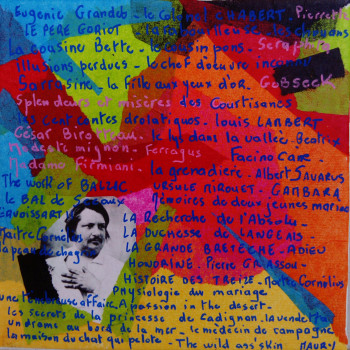 Eugenie Grandet - le Colonel CHABERT - Pierrette
LE PERE GORIOT - la rabouilleuse - les chouans
La cousine Bette - le cousin pons - Seraphita
Illusions perdues - le chef d'oeuvre inconnu
Sarrasine - la fille aux yeux d'or - GOBSECK
Splendeurs et misères des Courtisanes
les cent contes drolatiques - louis LAMBERT
César Birotteau - le lys dans la vallée - Beatrix
Modeste mignon - Ferragus
Facino Cane
Madame Firmiani
la grenadière - Albert SAVARUS
The work of BALZAC
URSULE MIROUET - GAMBARA
le BAL de Sceaux
Mémoires de deux jeunes mariées
LA Recherche de l'Absolu
Maitre Cornélius
LA DUCHESSE de LANGEAIS
la peau de chagrin
LA GRANDE BRETECHE - ADIEU
HONORINE - Pierre GRASSOU
HISTOIRE DES TREIZE - Maître Cornélius
Physiologie du mariage
une tenebreuse affaire - A passion in the desert
les secrets de la princesse de Cadignan - la vendetta
un drame au bord de la mer - le médecin de campagne
la maison du chat qui pelote - The wild ass' skin
MAURY